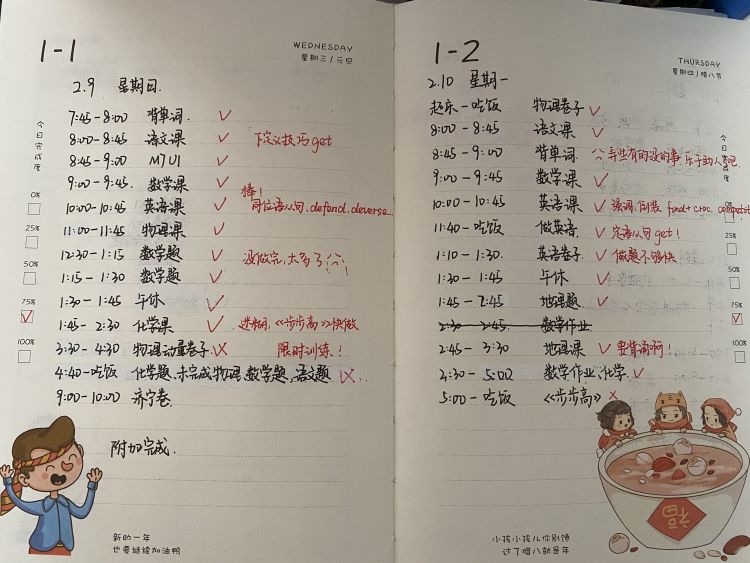 1-1
WEDNESDAY
星期三/元旦
2.9 星期日.
今日完成度
0%
25%
50%
75%
100%
7:45-8:00 背单词. ✓
8:00-8:45 语文课 ✓ 下定义技巧get
8:45-9:00 MJUI ✓
9:00-9:45. 数学课 ✓ 棒!
10:00-10:45 英语课 ✓ 同位语从句.defend.deverse...
11:00-11:45 物理课 ✓
12:30-1:15 数学题 ✓ 没做完,太多了
1:15-1:30 数学题 ✓
1:30-1:45 午休 ✓
1:45-2:30 化学课 ✓ 迷糊,《步步高》快做
3:30-4:30 物理动量卷子. 限时训练!
4:40-吃饭 化学题.未完成物理.数学题,语文题
9:00-10:00 济宁卷.
附加完成.
新的一年
也要继续加油鸭
1-2
THURSDAY
星期四/腊八节
2.10 星期一
今日完成度
0%
25%
50%
75%
100%
起床-吃饭 物理卷子 ✓
8:00-8:45 语文课 ✓
8:45-9:00 背单词 弄些有的没的事 乐于助人吧
9:00-9:45 数学课 ✓
10:00-10:45 英语课 ✓ 强调.倒装
11:40-吃饭 做英语. ✓ 定语从句get!
1:10-1:30. 英语卷子 ✓ 做题不够快
1:30-1:45 午休 ✓
1:45-2:45 地理题 ✓
2:30-2:45 数学作业
2:45-3:30 地理课 ✓ 要背诵啊!
3:30-5:00 数学作业.化学 ✓
5:00-吃饭 《步步高》 ×
福
小孩小孩儿你别馋
过了腊八就是年